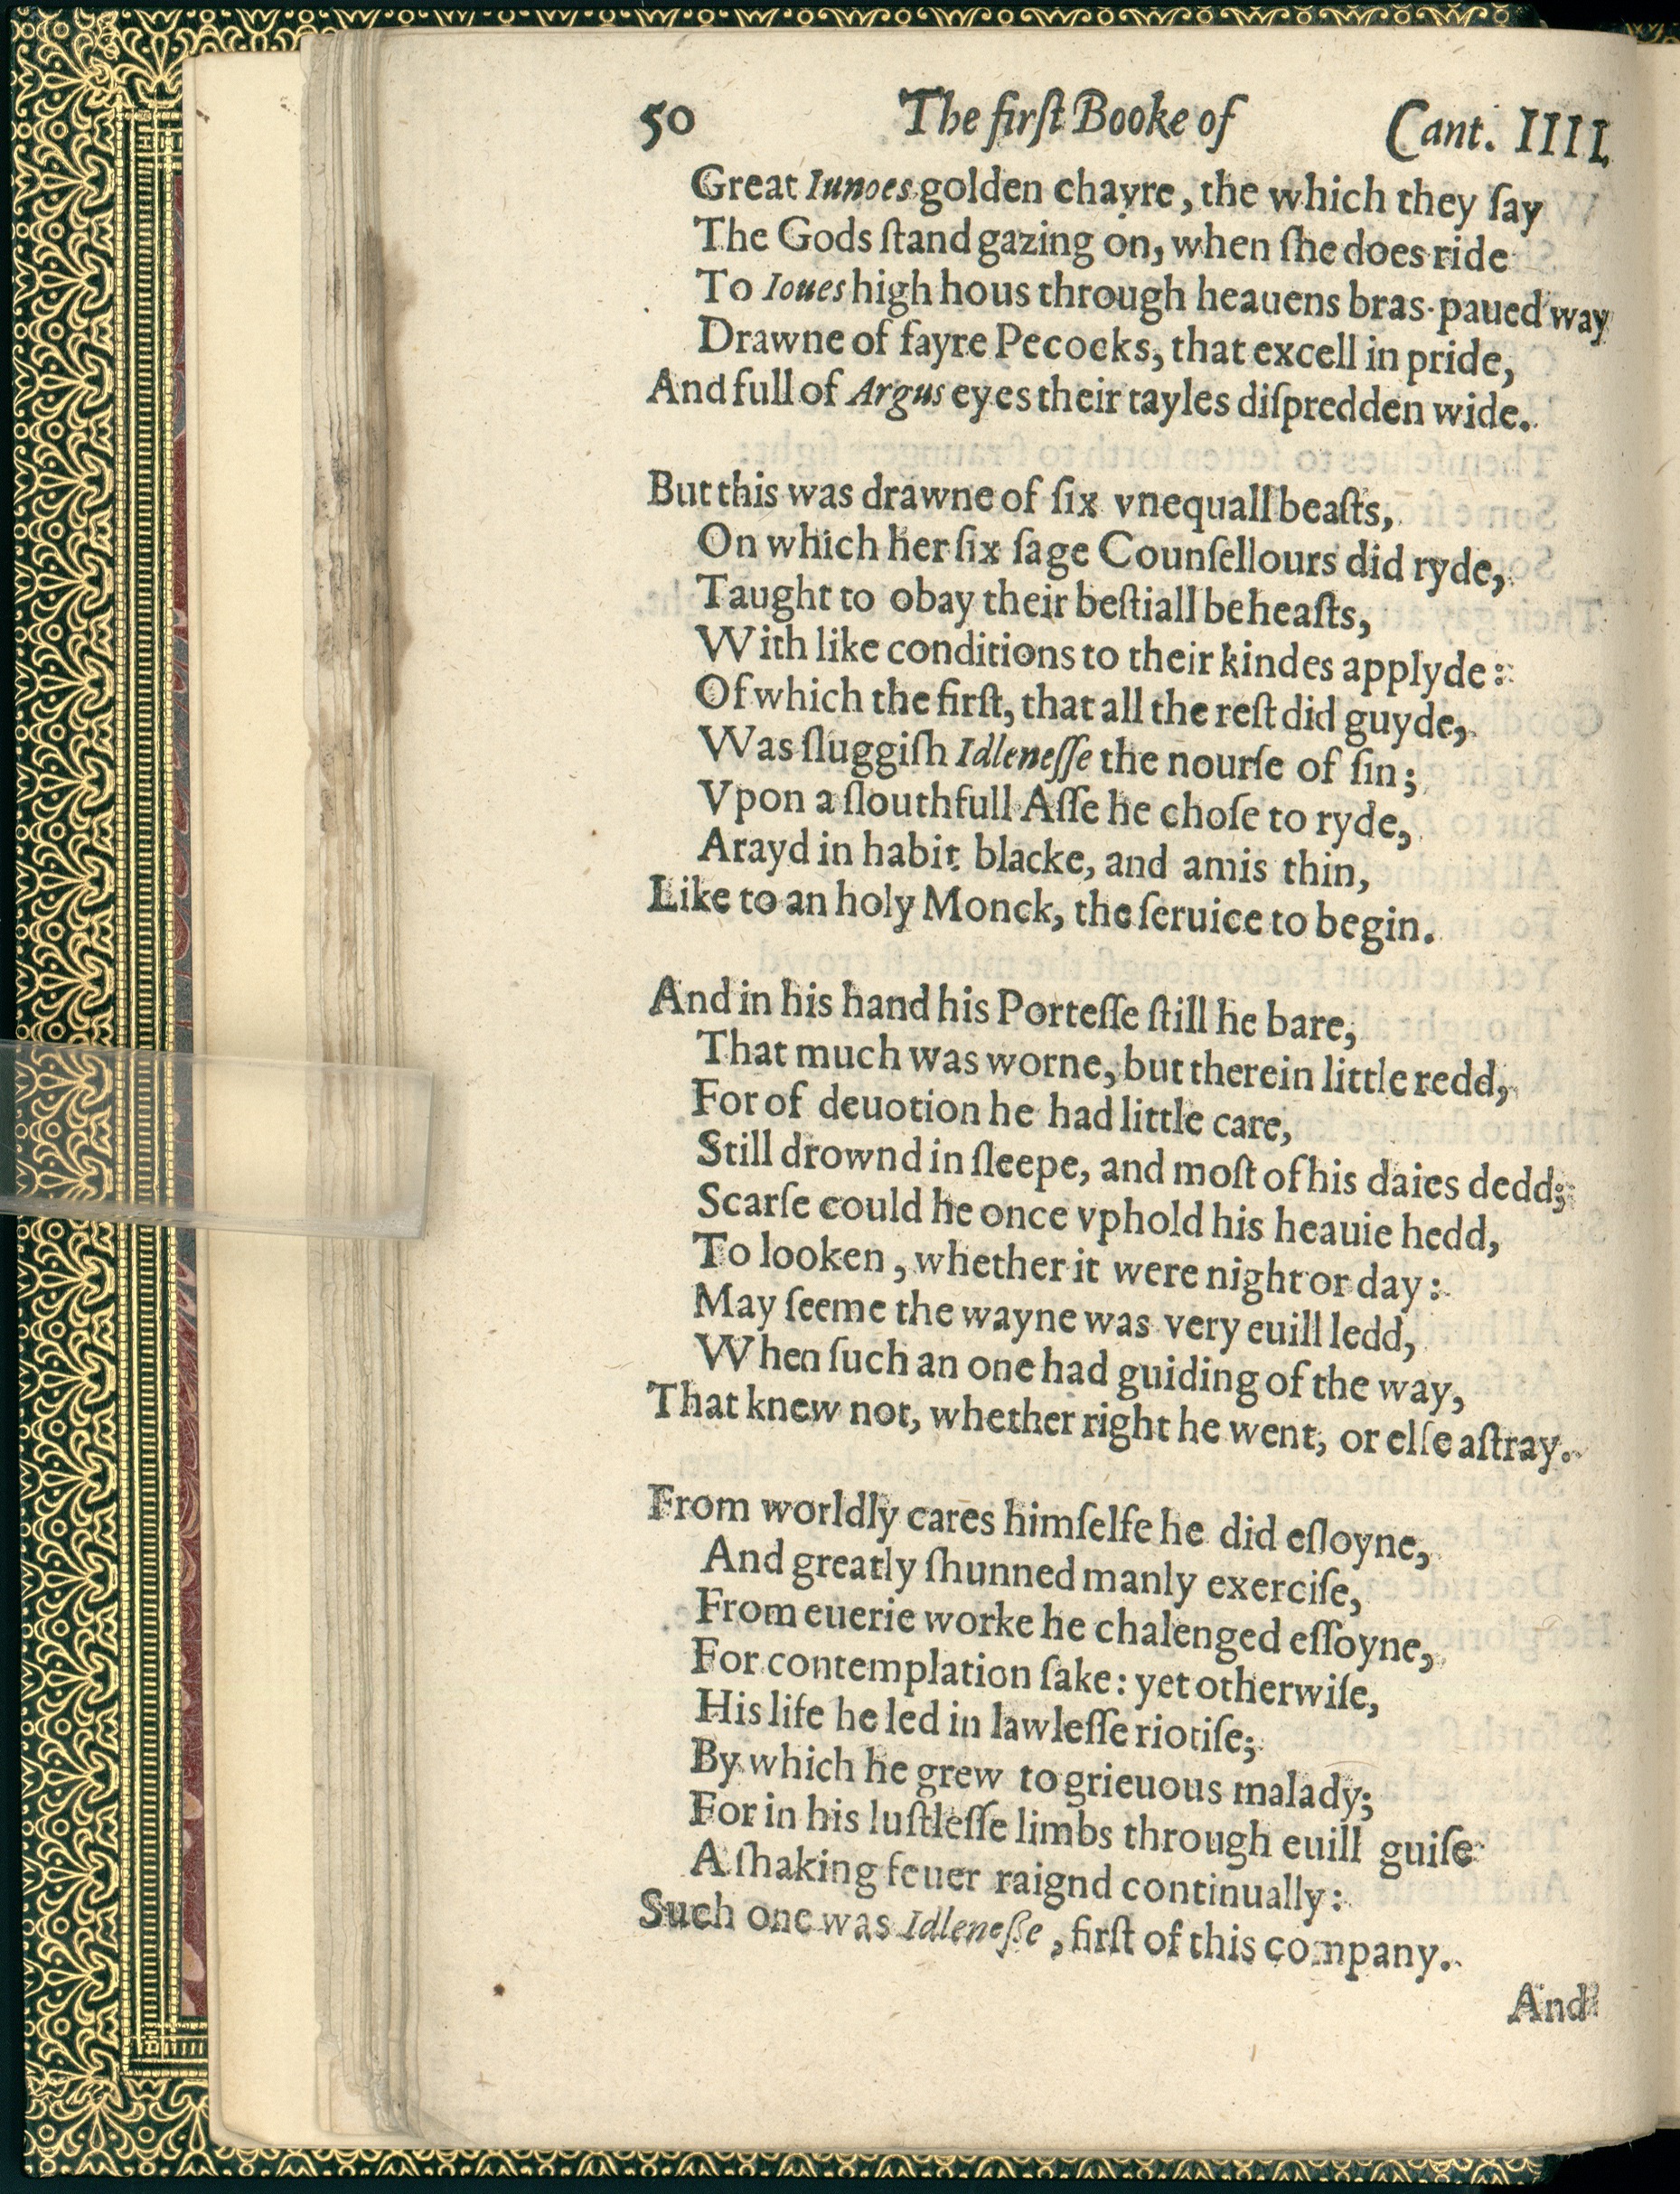 50 The firſt Booke of Cant. IIII.
Great Iunoes golden chayre, the which they ſay
The Gods ſtand gazing on, when ſhe does ride
To Ioues high hous through heauens bras-paued way
Drawne of fayre Pecocks, that excell in pride,
And full of Argus eyes their tayles diſpredden wide.
But this was drawne of ſix vnequall beaſts,
On which her ſix ſage Counſellours did ryde,
Taught to obay their beſtiall beheaſts,
With like conditions to their kindes applyde:
Of which the firſt, that all the reſt did guyde,
Was ſluggiſh Idleneſſe the nourſe of ſin;
Vpon a ſlouthfull Aſſe he choſe to ryde,
Arayd in habit blacke, and amis thin,
Like to an holy Monck, the ſeruice to begin.
And in his hand his Porteſſe ſtill he bare,
That much was worne, but therein little redd,
For of deuotion he had little care,
Still drownd in ſleepe, and moſt of his daies dedd;
Scarſe could he once vphold his heauie hedd,
To looken, whether it were night or day:
May ſeeme the wayne was very euill ledd,
When ſuch an one had guiding of the way,
That knew not, whether right he went, or elſe aſtray.
From worldly cares himſelfe he did eſloyne,
And greatly ſhunned manly exerciſe,
From euerie worke he chalenged eſſoyne,
For contemplation ſake: yet otherwiſe,
His life he led in lawleſſe riotiſe;
By which he grew to grieuous malady;
For in his luſtleſſe limbs through euill guiſe
A ſhaking feuer raignd continually:
Such one was Idleneſſe, firſt of this company.
And